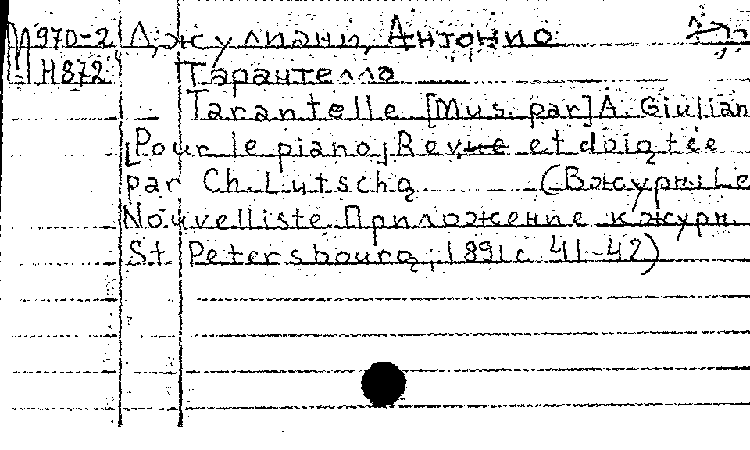 М 970-2 Джулиани, Антонио
Н872 Тарантелла
Tarantelle [Mus. par] A. Giulian
[Pour le piano] Revue et doigtée
par Ch. Lutschg (В журн: Le
Nouvelliste. Приложение к журн.
St. Petersbourg, 1891 с 41-42)